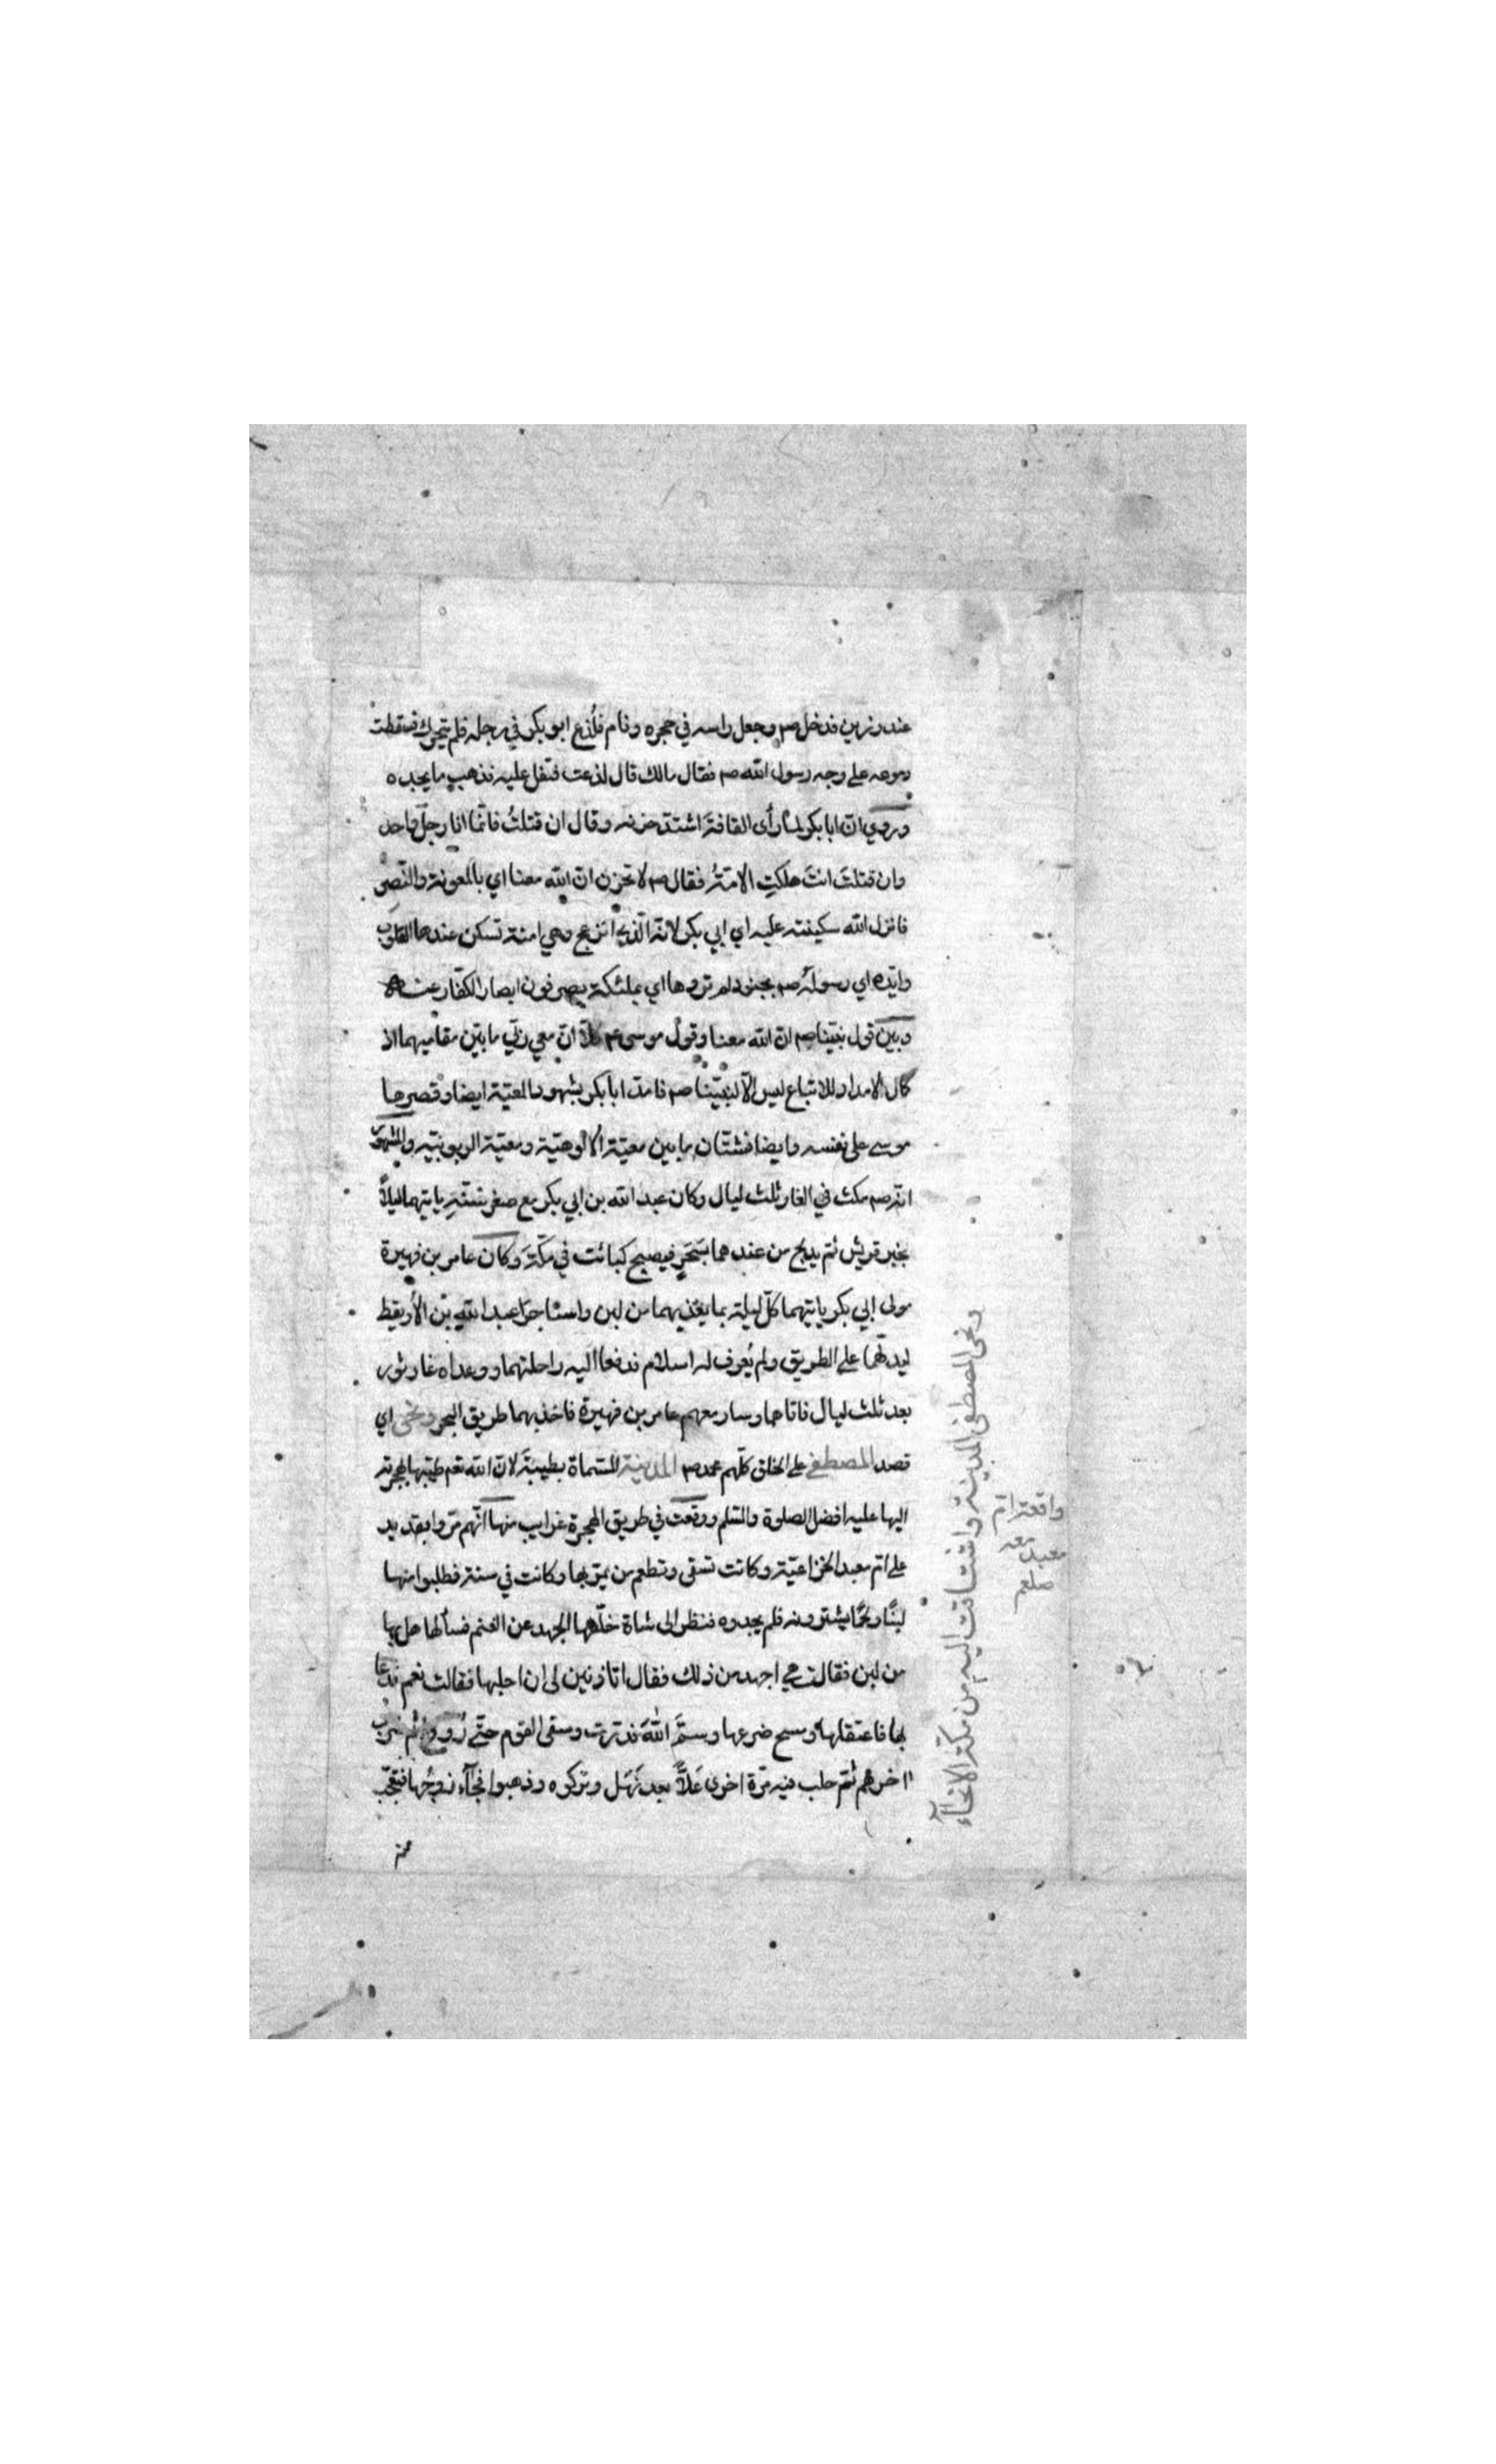 عند رزين فدخل صم وجعل راسه في حجره ونام فلُدغ ابو بكر في رجله فلم يتحرك فسقطت
دموعه على وجه رسول الله صم فقال مالك قال لدغت فتفل عليه فذهب ما يجده
وروي انّ ابا بكر لما رأى القافة اشتدّ حزنه وقال ان قتلتُ فانّما انا رجل واحد
وان قتلتَ انتَ هلكتِ الامّةُ فقال صم لا تحزن انّ الله معنا اي بالمعونة والنّصر
فانزل الله سكينته عليه اي ابي بكر لانّه الّذي انزعج وهي امنة تسكن عندها القلوب
وايّده اي رسولَه صم بجنود لم تروها اي بملئكة يصرفون ابصار الكفّار عنه
وبين قول نبيّنا صم انّ الله معنا وقول موسى ع م كلّا انّ معي ربّي ما بين مقاميهما اذ
كمال الامداد للاتباع ليس الّا لنبيّنا صم فامدّ ابا بكر بشهود المعيّة ايضا وقصرها
موسى على نفسه وايضا فشتّان ما بين معيّة الالوهيّة ومعيّة الربوبيّة والمشهور
انّه صم مكث في الغار ثلث ليال وكان عبد الله بن ابي بكر مع صغر سنّه ياتيهما ليلاً
بخبر قريش ثم يدلج من عندهما بسَحَرٍ فيصبح كبائت في مكّةَ وكان عامر بن فهيرة
مولى ابي بكر ياتيهما كلّ ليلة بما يغذيهما من لبن واستاجرَا عبد الله بن الأريقط
ليدلّهما على الطريق ولم يُعرف له اسلام فدفعا اليه راحلتهما ووعداه غار ثور
بعد ثلث ليال فاتاهما وسار معهم عامر بن فهيرة فاخذ بهما طريق البحر ونحى اي
قصد المصطفى على الخلق كلّهم محمد صم المدينة المسّماة بطيبَةَ لانّ الله تعم طيّبها بهجرته
اليها عليه افضل الصلوة والسّلم ووقعت في طريق الهجرة غرايب منها انّهم مرّوا بقديد
على امّ معبد الخزاعيّة وكانت تسقى وتطعم من يمرّ بها وكانت في سنة فطلبوا منها
لبنًا ولحمًا يشترونه فلم يجدوه فنظر الى شاة خلّفها الجهد عن الغنم فسألها هل بها
من لبن فقالت هي اجهد من ذلك فقال اتاذنين لى ان احلبها فقالت نعم فدعا
بها فاعتقلها ومسح ضرعها وسمَّى اللهَ فدرّت وسقى القوم حتّى رُووا ثم شرب
اخرهم ثمّ حلب فيه مرّة اخرى عَلاًّ بعد نَهَل وتركوه وذهبوا فجآء زوجُها فتعجّب
ونحى المصطفى المدينة واشتاقت اليه من مكّة الانحآء
واقعة امّ
معبد معه
صلعم